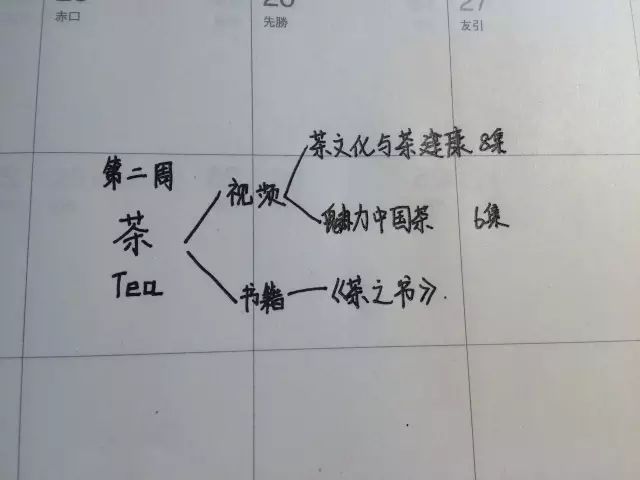 赤口
先勝
27
友引
茶文化与茶建康 8集
第二周
视频
茶
魅力中国茶 6集
Tea
书籍
《茶之书》.